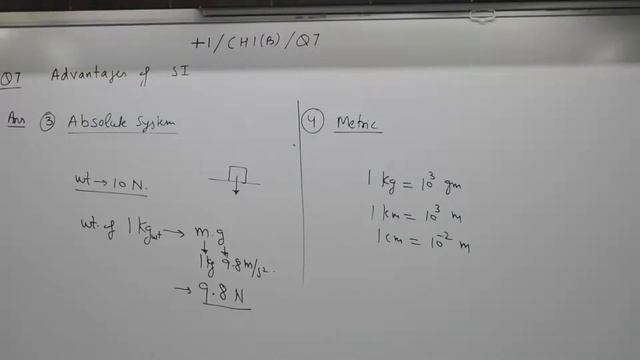 +1/CH1(B)/Q7
Q7 Advantages of SI
Ans ③ Absolute System
wt → 10 N.
wt. of 1 kgwt → m.g
↓ ↓
1kg 9.8 m/s².
→ 9.8 N
④ Metric
1 kg = 10³ gm
1 km = 10³ m
1 cm = 10⁻² m